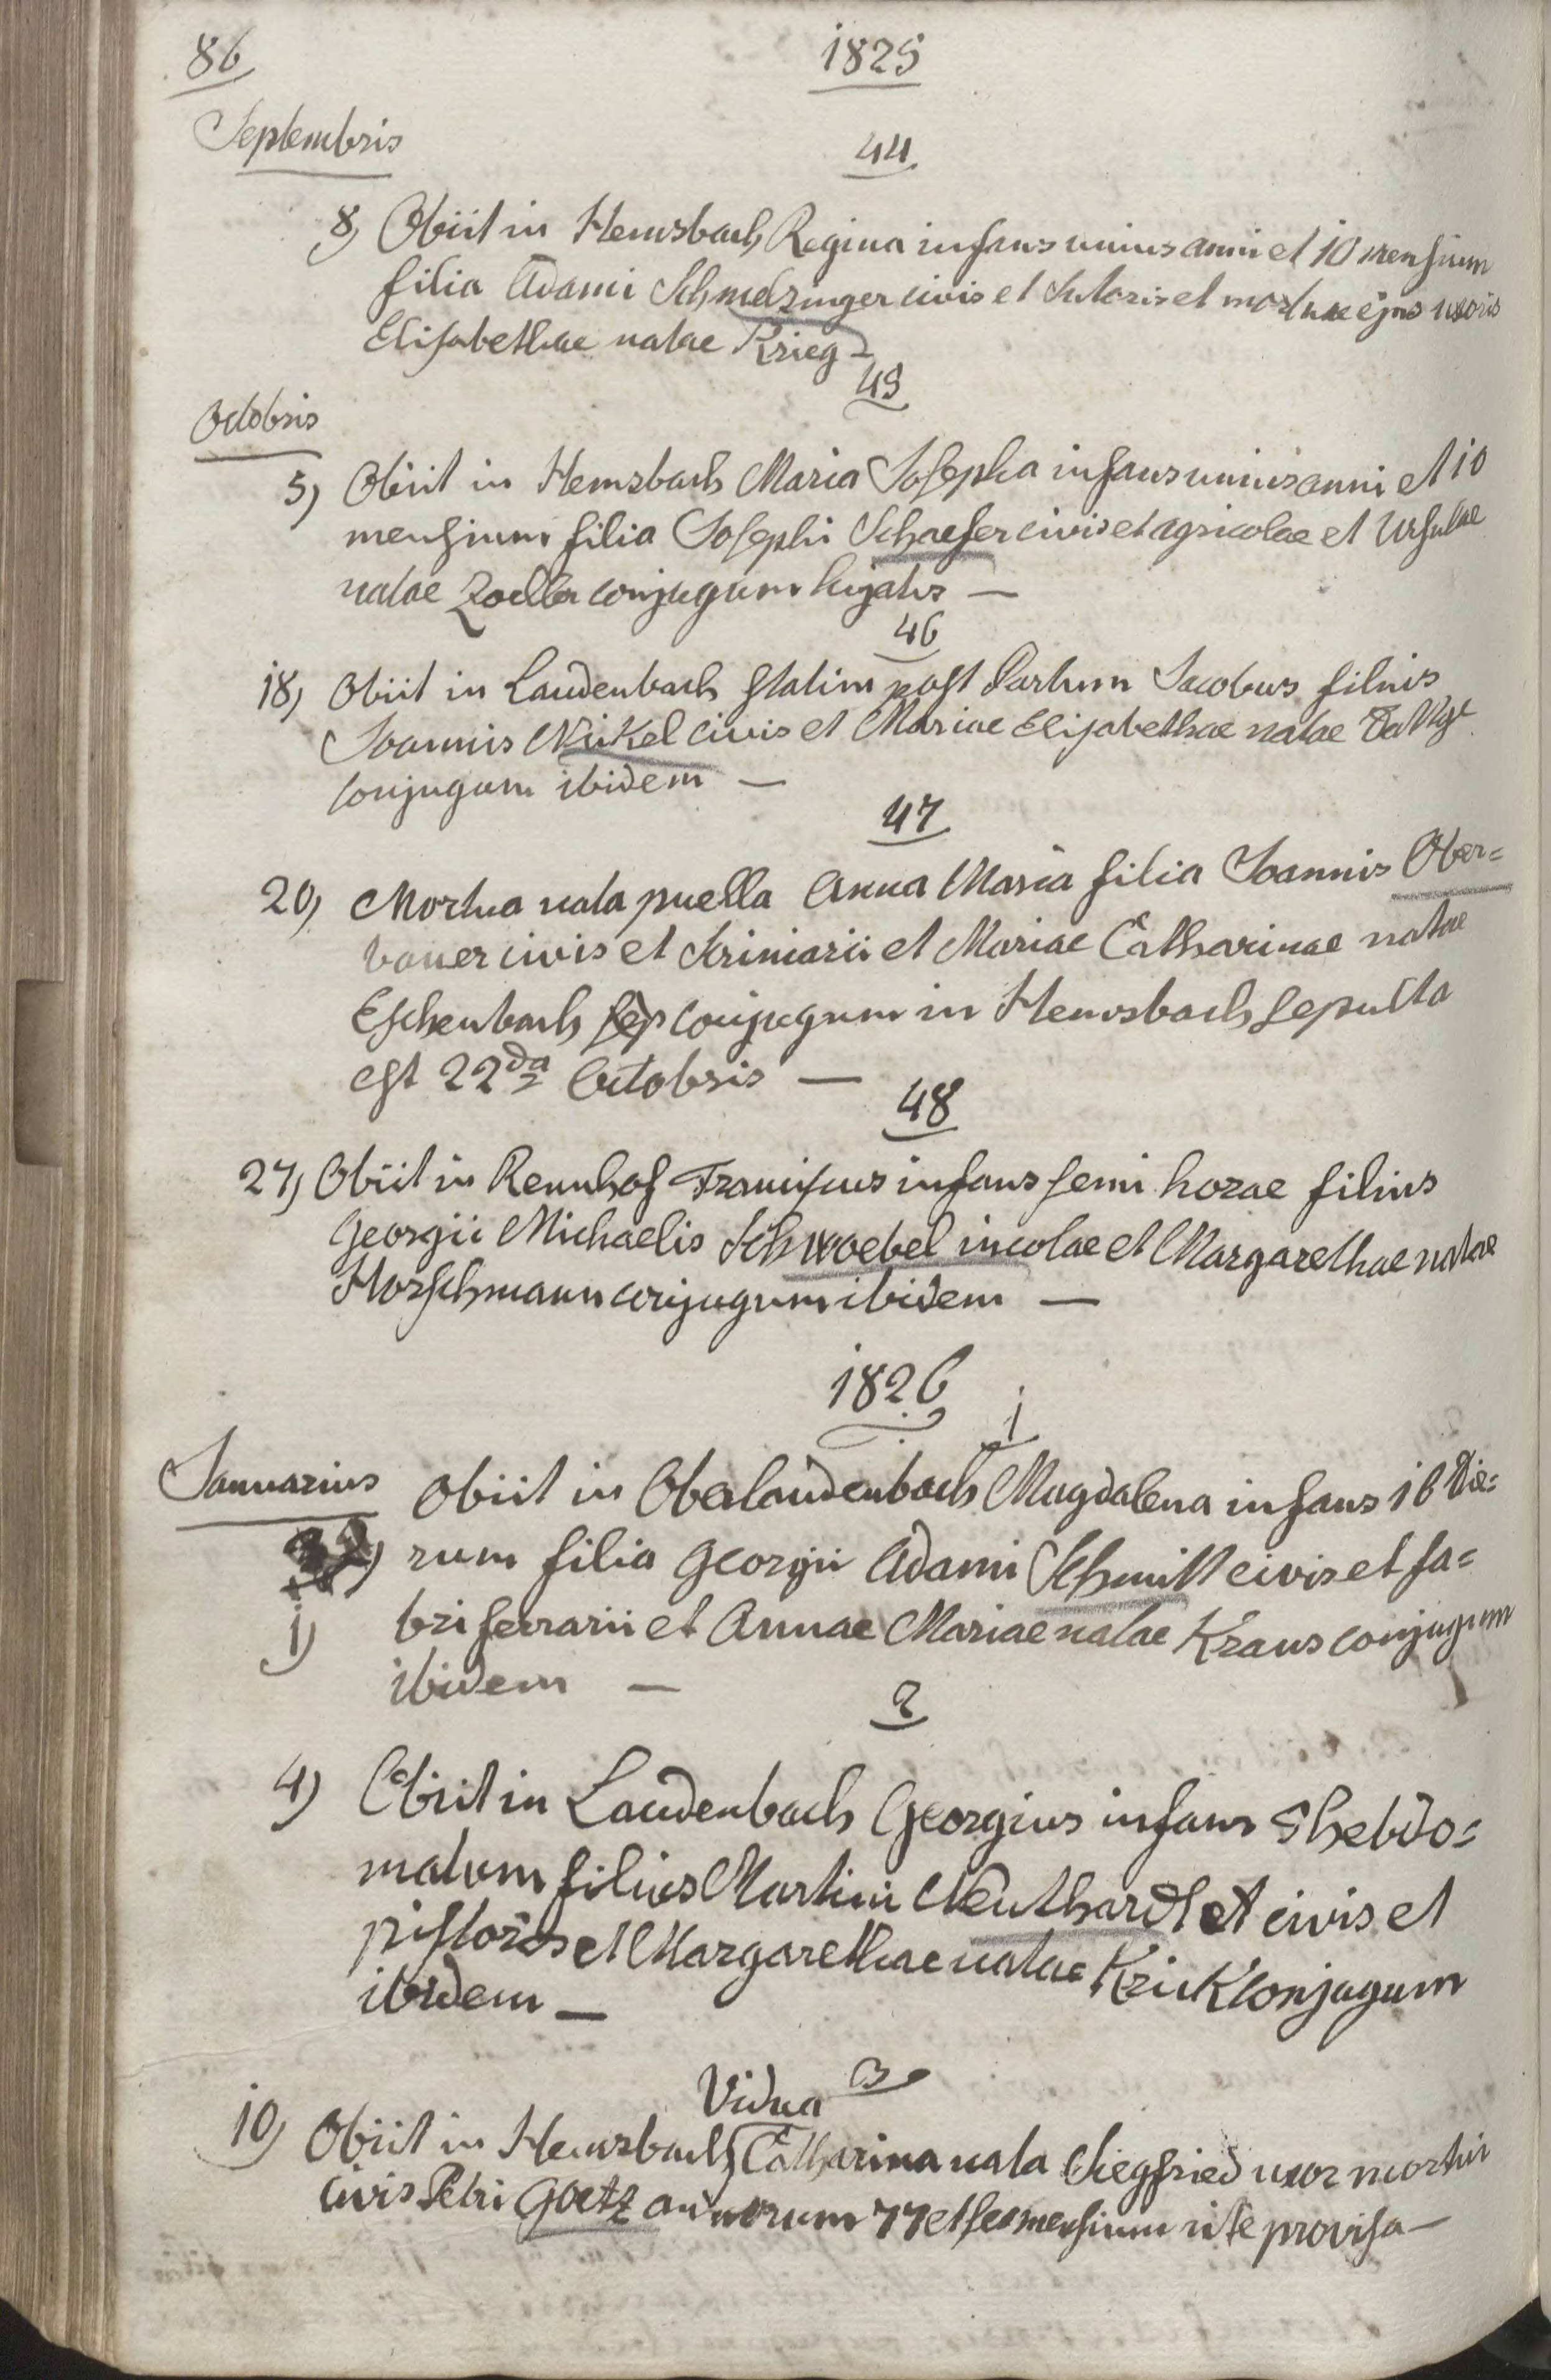 86
1825
Septembris
44
8) Obiit in Hemsbach Regina infans unius anni et 10 mensium
filia Adami Schmelzinger civis et Sutoris et mortuae ejus uxoris
Elisabethae natae Krieg
45
Octobris
5) Obiit in Hemsbach Maria Josepha infans unius anni et 10
mensium filia Josephi Schaefer civis et agricolae et Ursulae
natae Zoeller conjugum hujatis —
46
18) Obiit in Laudenbach statim post Partum Jacobus filius
Joannis Nickel civis et Mariae Elisabethae natae
conjugum ibidem —
47
20) Mortua nata puella Anna Maria filia Joannis Ober=
bauer civis et Scriniarii et Mariae Catharinae natae
Eschenbach sep conjugum in Hemsbach sepulta
est 22da Octobris —
48
27) Obiit in Rennhof Franciscus infans semi horae filius
Georgii Michaelis Schwoebel incolae et Margarethae natae
Horschmann conjugum ibidem —
1826
1
Januarius Obiit in Oberlaudenbach Magdalena infans 16 die=
rum filia Georgii Adami Schmitt civis et fa=
1) bri ferrarii et Annae Mariae natae Kraus conjugum
ibidem —
2
4) Obiit in Laudenbach Georgius infans 5 hebdo=
madum filius Martini Neuthardt et civis et
pistoris et Margarethae natae Krick conjugum
ibidem —
3
Vidua
10) Obiit in Hemsbach Catharina nata Siegfried uxor mortui
civis Petri Goetz annorum 77 et sex mensium rite provisa —